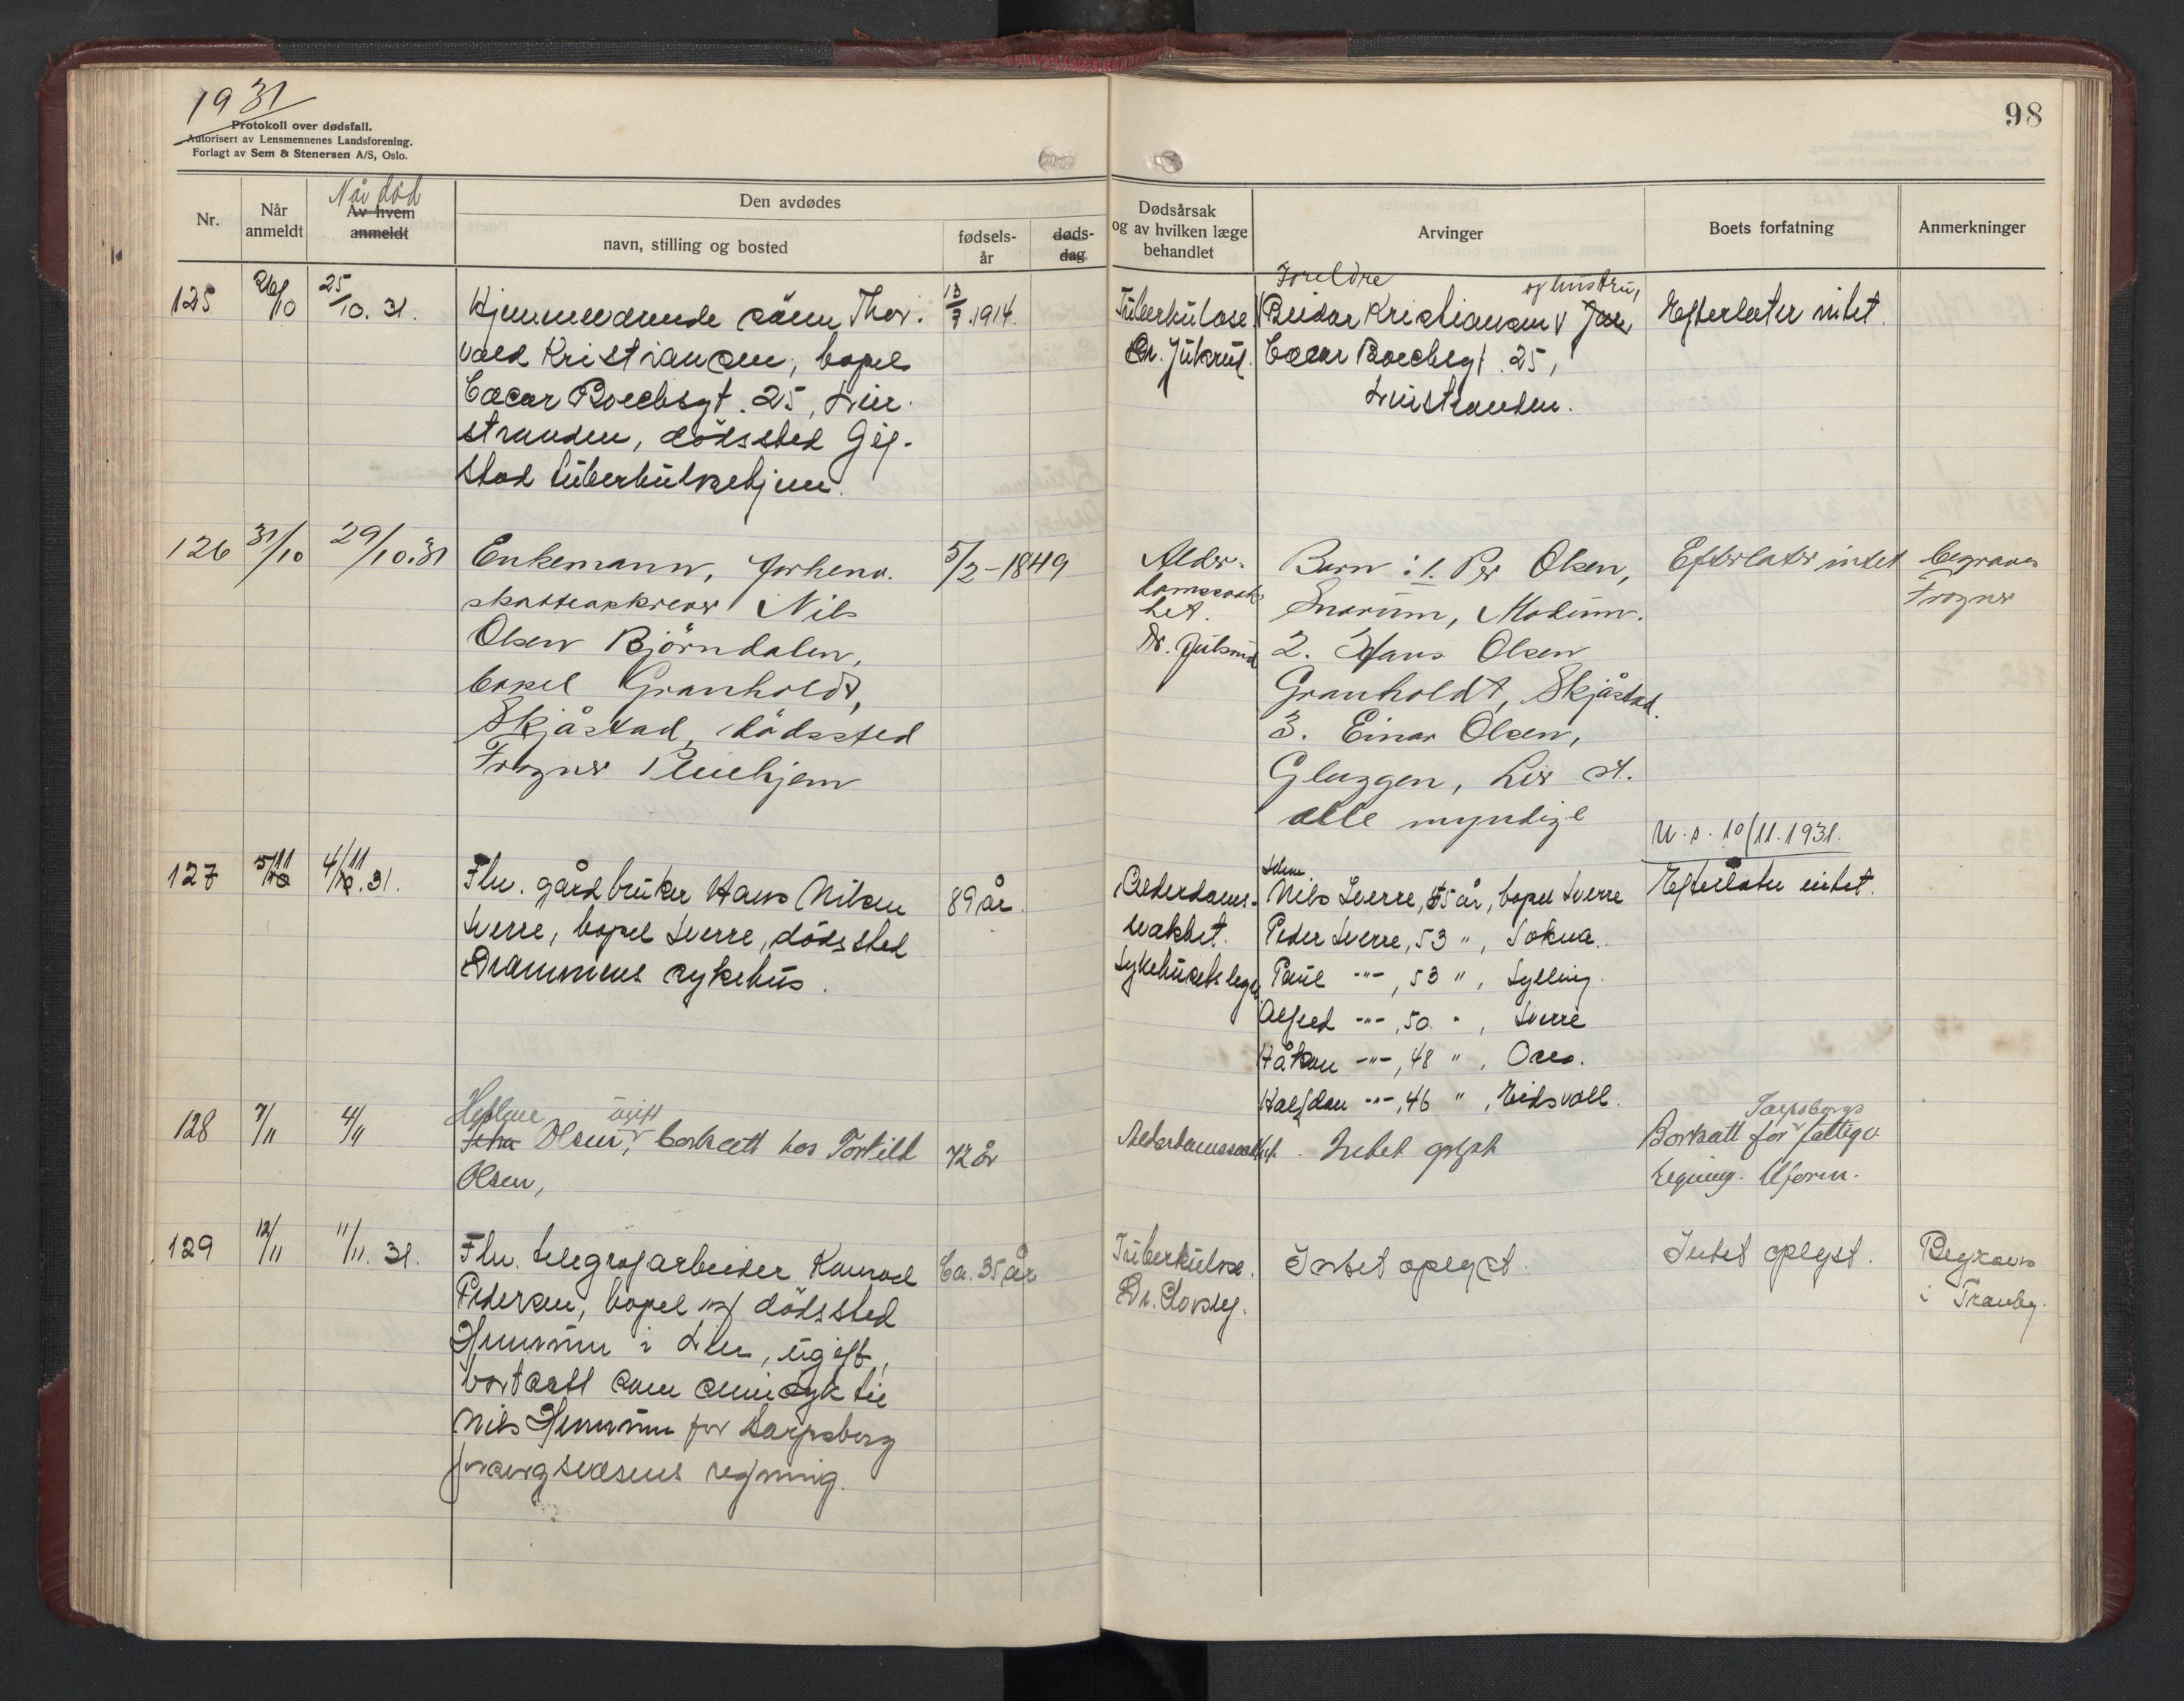 1931
Protokoll over dødsfall.
Autorisert av Lensmennenes Landsforening.
Forlagt av Sem & Stenersen A/S, Oslo.
98
Nr.
Når
anmeldt
Når død
Av hvem
anmeldt
Den avdødes
navn, stilling og bosted
fødsels-
år
døds-
dag
Dødsårsak
og av hvilken læge
behandlet
Arvinger
Boets forfatning
Anmerkninger
125
26/10
25/10. 31.
Hjemmeværende sönn Thor-
vald Kristiansen, bopel
Oscar Boechsgt. 25, Lier-
stranden, dödssted Gil-
stad tuberkulosehjem.
13/7.1914.
Tuberkulose
Dr. Julsrud.
Foreldre
og hustru,
Reidar Kristiansen
Oscar Boechsgt. 25,
Lierstranden.
Efterlater intet.
126
31/10
29/10.31
Enkemann, forhenv.
skatteopkrever Nils
Olsen Björndalen,
bopel Granholdt,
Skjåstad, dödssted
Frogner Pleiehjem
5/2-1849
Alder-
domssvak-
het.
Dr. Julsrud
Barn: 1. Per Olsen,
Snarum, Modum.
2. Hans Olsen
Granholdt, Skjåstad.
3. Einar Olsen,
Gluggen, Lier st.
alle myndige
Efterlater intet
begraves
Frogner
U.s. 10/11.1931.
127
5/11
4/11.31.
Fhv. gårdbruker Hans Nilsen
Sverre, bopel Sverre, dödssted
Drammens sykehus.
89 år.
Alderdoms-
svakhet.
Sykehusets lege.
Nils Sverre, 55 år, bopel Sverre
Peder Sverre, 53 ", Sokna.
Paul -"-, 53 ", Sylling.
Alfred -"-, 50 ", Sverre
Håkon -"-, 48 ", Oslo.
Halfdan -"-, 46 ", Eidsvoll.
Efterlater intet.
128
7/11
4/11
ugift
Olsen, bortsatt hos Torkild
Olsen,
72 år
Alderdomssvakhet.
Intet oplyst
Sarpsborgs
Bortsatt for fattigv.
regning. Uform.
129
12/11
11/11. 31.
Fhv. telegrafarbeider Konrad
Pedersen, bopel og dödssted
Hennum i Lier, ugift,
bortsatt som sinnsyk til
Nils Hennum for Sarpsborg
forsorgsvesens regning.
Ca. 35 år
Tuberkulose.
Intet oplyst.
Intet oplyst.
Begraves
i Tranby.